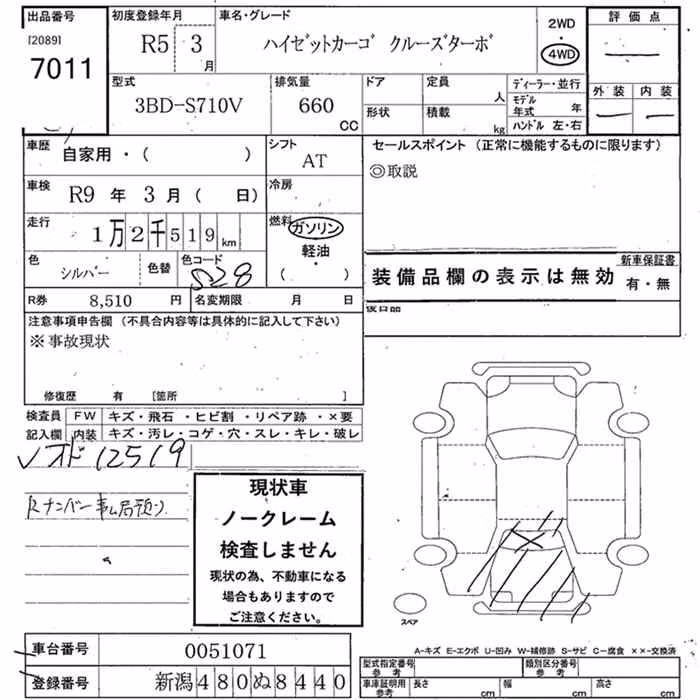 出品番号
[2089]
7011
初度登録年月
R5 3
月
車名・グレード
ハイゼットカーゴ クルーズターボ
2WD
4WD
評価点
外装 内装
型式
3BD-S710V
排気量
660
CC
ドア
形状
定員
人
積載
kg
ディーラー・並行
モデル
年式 年
ハンドル 左・右
車歴
自家用・( )
シフト
AT
セールスポイント (正常に機能するものに限ります)
◎取説
車検
R9 年 3 月 ( 日)
冷房
走行
1万2千519km
燃料
ガソリン
軽油・
( )
色
シルバー
色替
色コード
S28
新車保証書
有・無
装備品欄の表示は無効
R券 8,510 円
名変期限 月 日
後日品
注意事項申告欄 (不具合内容等は具体的に記入して下さい)
※事故現状
修復歴 有 [箇所 ]
検査員
記入欄
FW キズ・飛石・ヒビ割・リペア跡・×要
内装 キズ・汚レ・コゲ・穴・スレ・キレ・破レ
メオド 12519
現状車
ノークレーム
検査しません
現状の為、不動車になる
場合もありますので
ご注意ください。
スペア
車台番号 0051071
登録番号 新潟480ぬ8440
A-キズ E-エクボ U-凹み W-補修跡 S-サビ C-腐食 ××-交換済
型式指定番号
参考
類別区分番号
参考
車庫証明用
参考
長さ cm 幅 cm 高さ cm